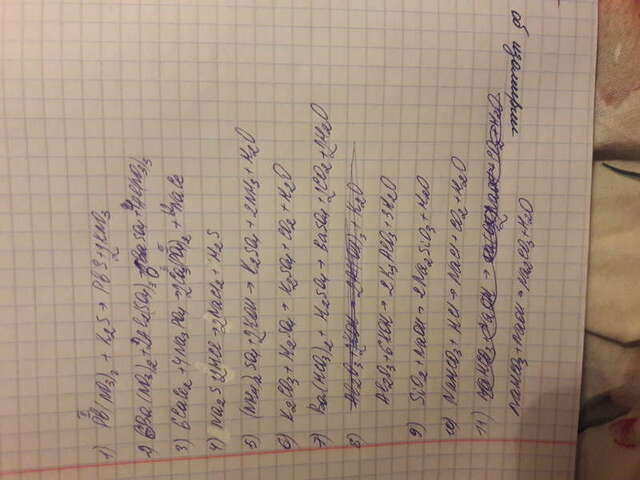 1) Pb(NO3)2 + K2S → PbS + 2KNO3
2) 6Ba(NO3)2 + 2Al2(SO4)3 → 6BaSO4 + 4Al(NO3)3
3) 6CaCl2 + 4Na3PO4 → 2Ca3(PO4)2 + 12NaCl
4) Na2S + 2HCl → 2NaCl2 + H2S
5) (NH4)2SO4 + 2KOH → K2SO4 + 2NH3 + H2O
6) K2CO3 + H2SO4 → K2SO4 + CO2 + H2O
7) Ba(HCO3)2 + H2SO4 → BaSO4 + 2CO2 + 2H2O
8) Al2O3 + 2KOH = 2Al(OH)3 + K2O
Al2O3 + 6KOH → 2K3AlO3 + 3H2O
9) SiO2 + NaOH → 2Na2SiO3 + H2O
10) NaHCO3 + HCl → NaCl + CO2 + H2O
11) NaHCO3 + NaOH → CO2 + H2O
NaHCO3 + NaOH → Na2CO3 + H2O